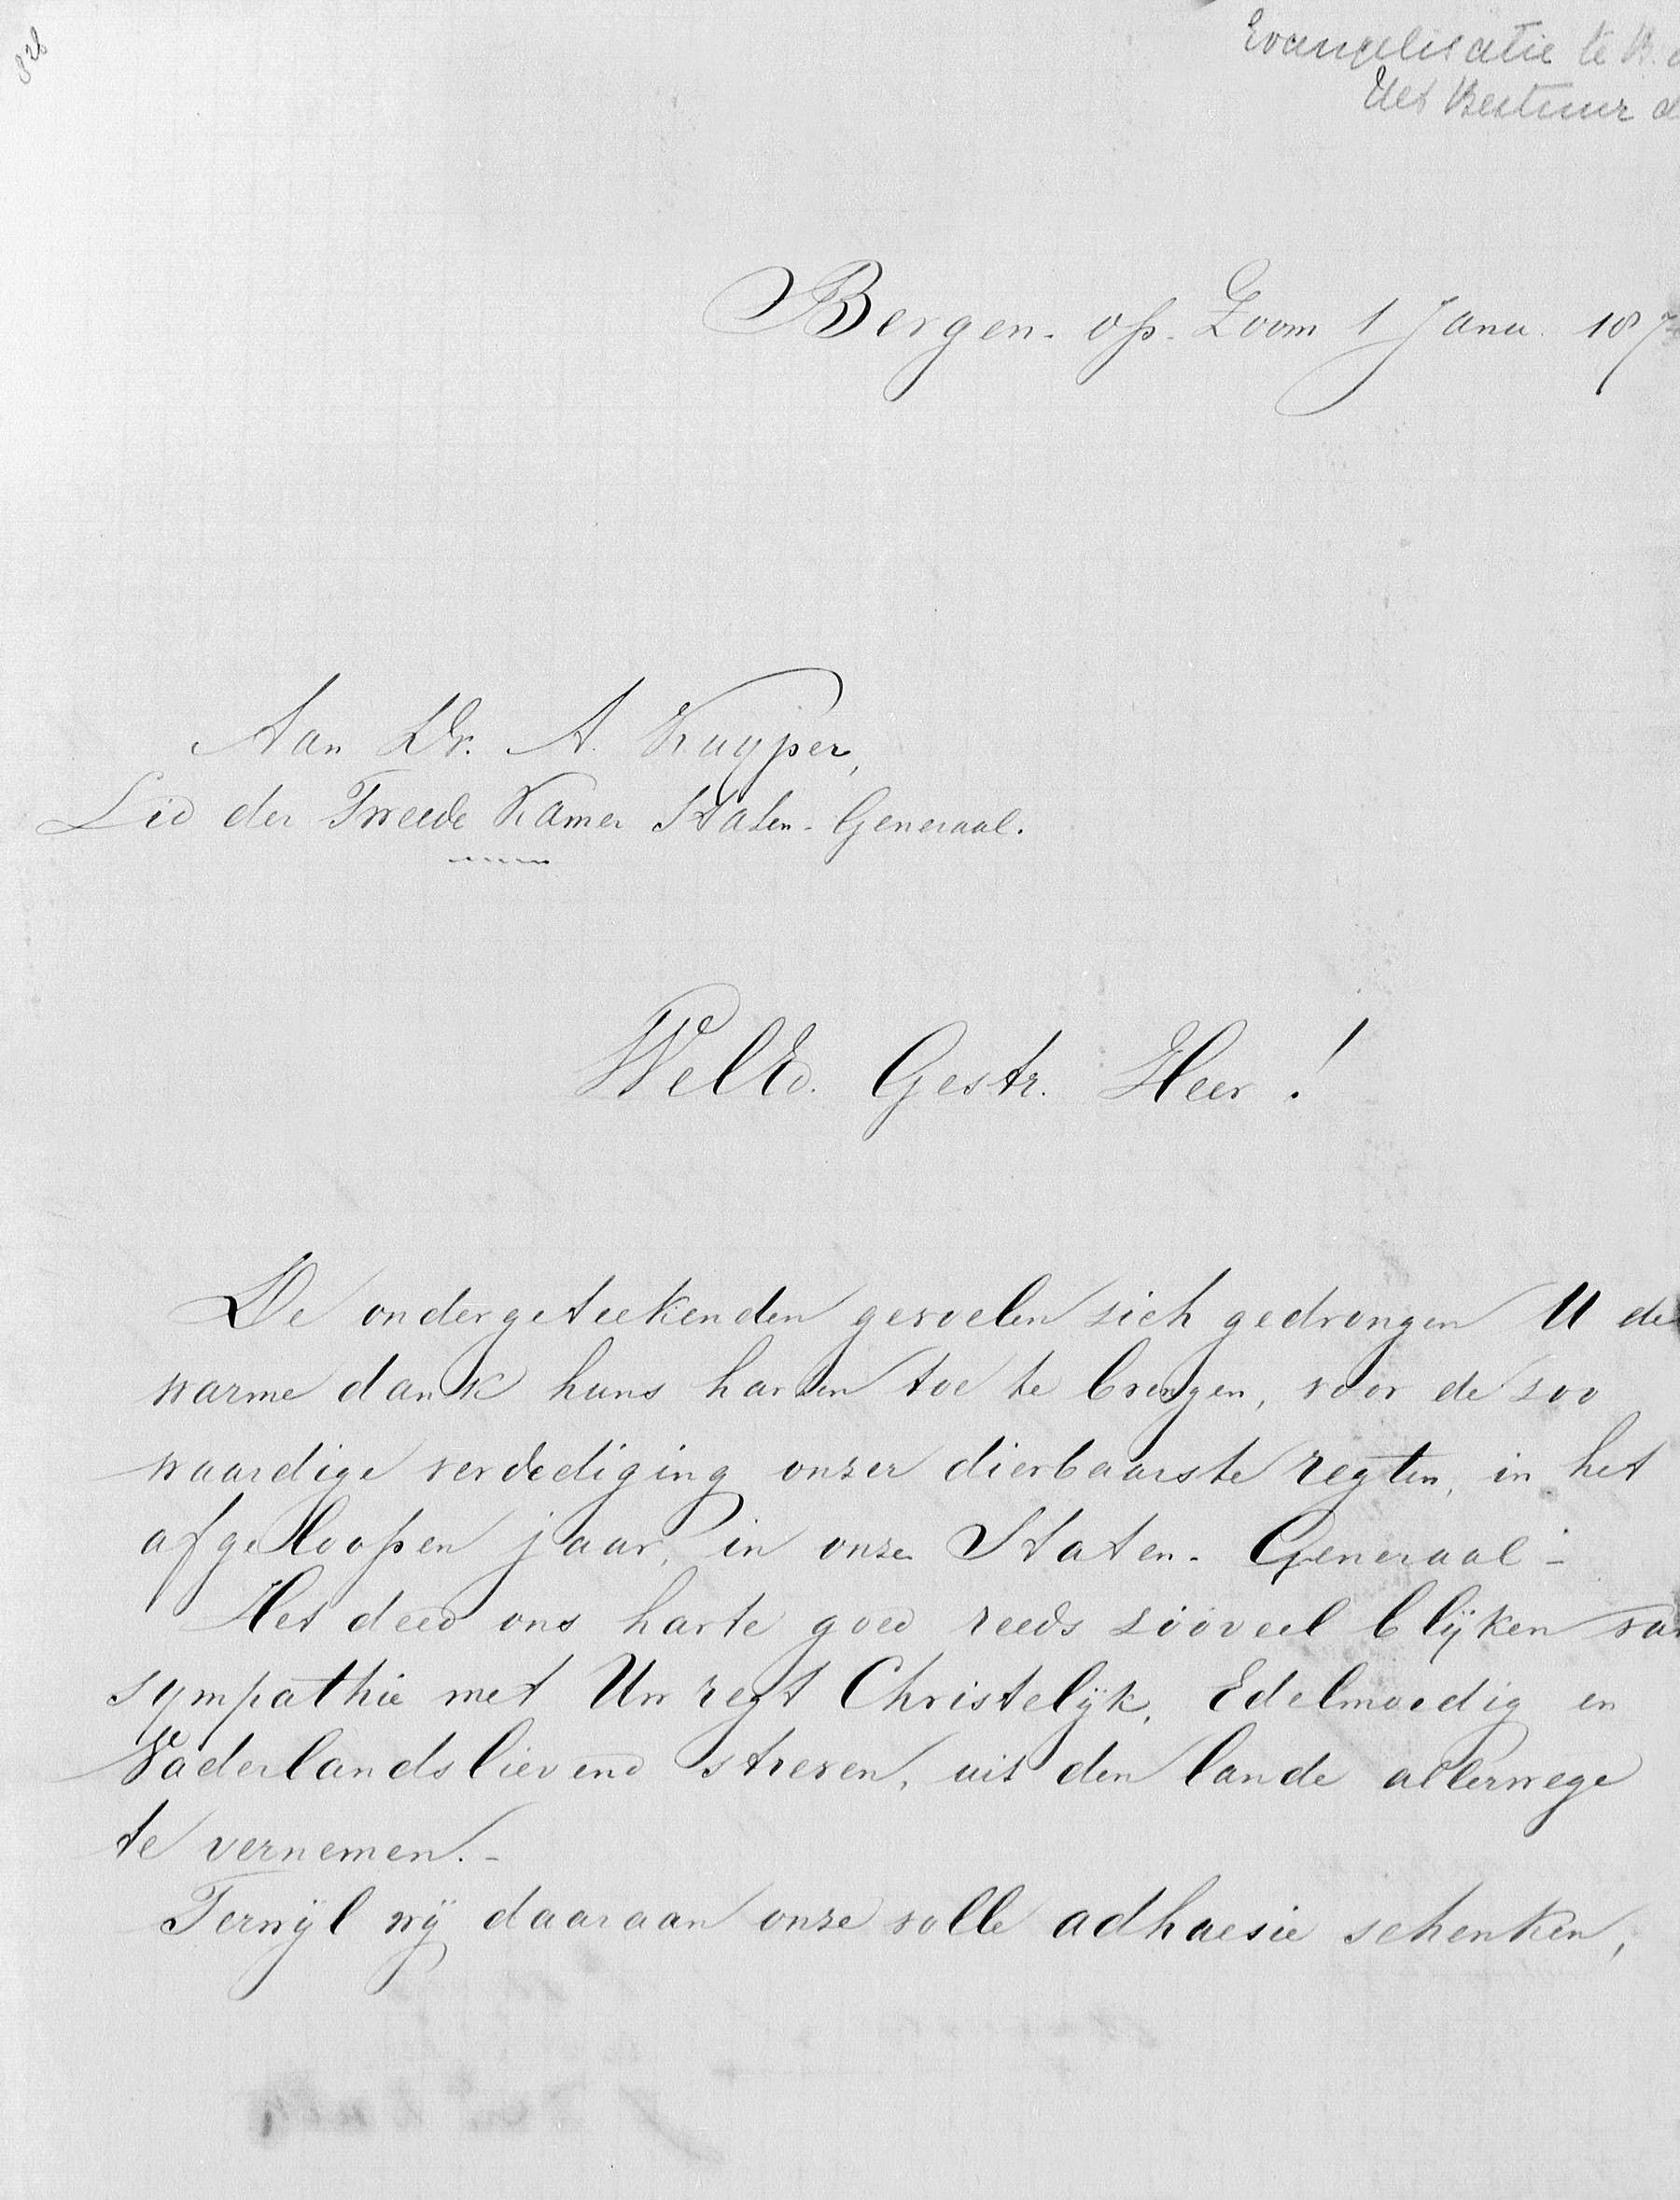 828
Evangelisatie te B.
Het Bestuur d
Bergen-op-Zoom 1 Janu. 187
Aan Dr. A. Kuyper,
Lid der Tweede Kamer Staten-Generaal.
WelEd. Gestr. Heer!
De ondergeteekenden gevoelen zich gedrongen U de
warme dank huns harten toe te brengen, voor de zoo
waardige verdediging onzer dierbaarste regten, in het
afgeloopen jaar, in onze Staten-Generaal -
Het deed ons harte goed reeds zóóveel blijken van
sympathie met Uw regt Christelijk, Edelmoedig en
Vaderlandslievend streven, uit den lande allerwege
te vernemen. -
Terwijl wij daaraan onze volle adhaesie schenken,